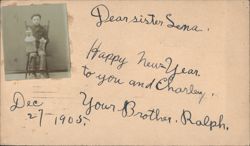 Dear sister Lena.
Happy New=Year
to you and Charley.
Dec
27-1905.
Your Brother. Ralph.